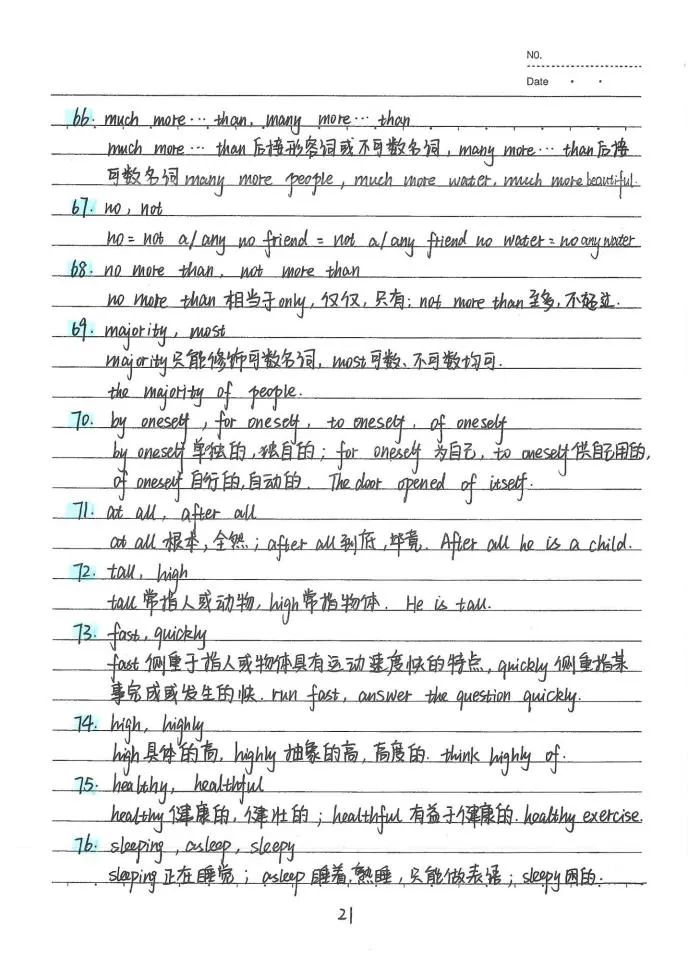 NO.
Date · ·
66. much more … than, many more … than
much more … than后接形容词或不可数名词, many more … than后接
可数名词 many more people, much more water, much more beautiful.
67. no, not
no = not a/any no friend = not a/any friend no water = no any water
68. no more than, not more than
no more than 相当于only, 仅仅, 只有; not more than 至多, 不超过.
69. majority, most
majority 只能修饰可数名词, most可数、不可数均可.
the majority of people.
70. by oneself, for oneself, to oneself, of oneself
by oneself 单独的, 独自的; for oneself 为自己, to oneself 供自己用的,
of oneself 自行的, 自动的. The door opened of itself.
71. at all, after all
at all 根本, 全然; after all 到底, 毕竟. After all he is a child.
72. tall, high
tall 常指人或动物, high 常指物体. He is tall.
73. fast, quickly
fast 侧重于指人或物体具有运动速度快的特点, quickly 侧重指某
事完成或发生的快. run fast, answer the question quickly.
74. high, highly
high 具体的高, highly 抽象的高, 高度的. think highly of.
75. healthy, healthful
healthy 健康的, 健壮的; healthful 有益于健康的. healthy exercise.
76. sleeping, asleep, sleepy
sleeping 正在睡觉; asleep 睡着, 熟睡, 只能做表语; sleepy 困的.
21